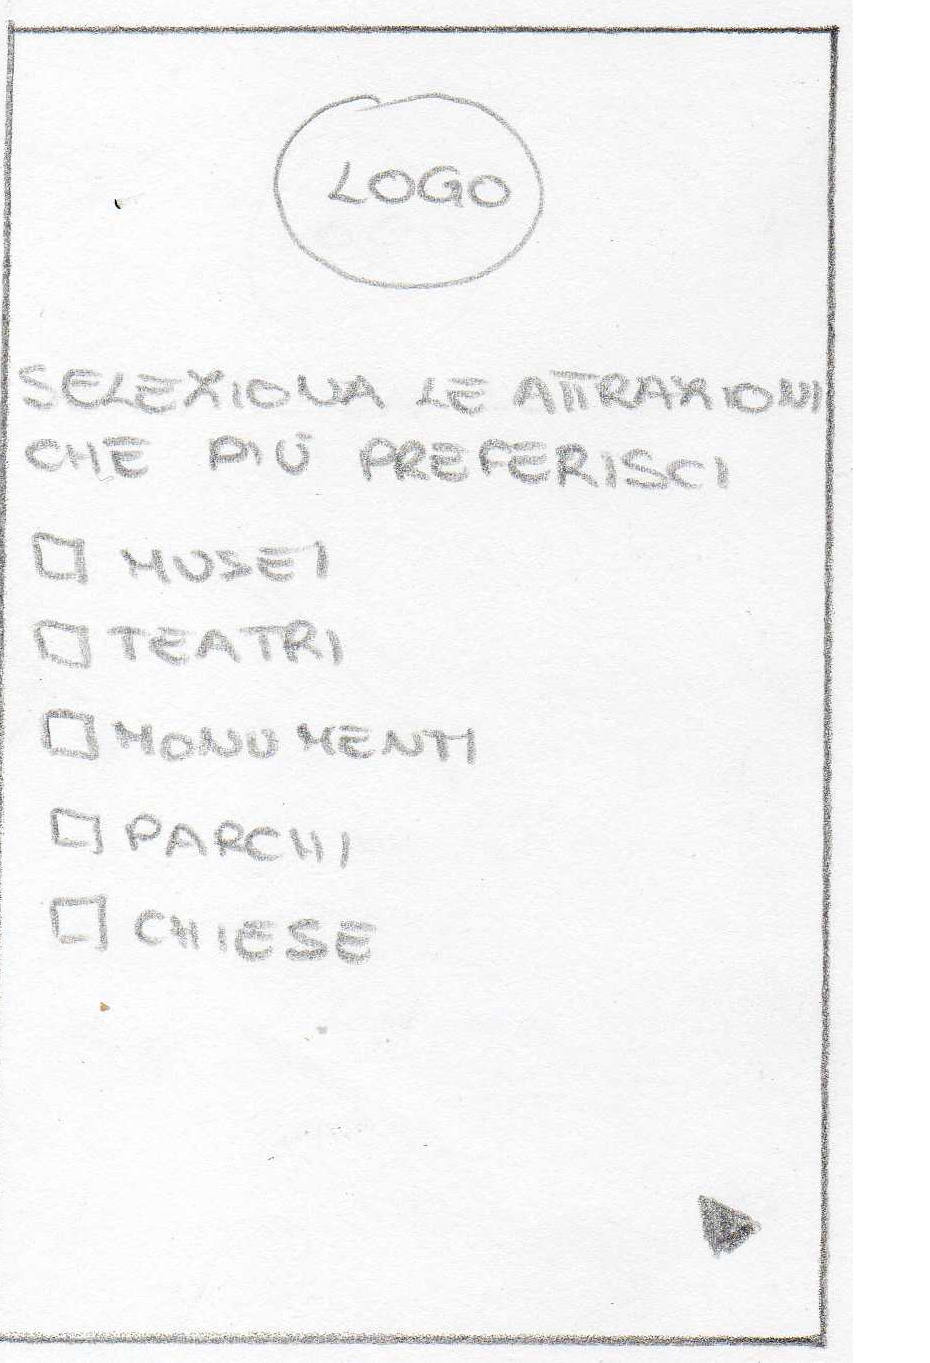 LOGO
SELEZIONA LE ATTRAZIONI
CHE PIÙ PREFERISCI
MUSEI
TEATRI
MONUMENTI
PARCHI
CHIESE